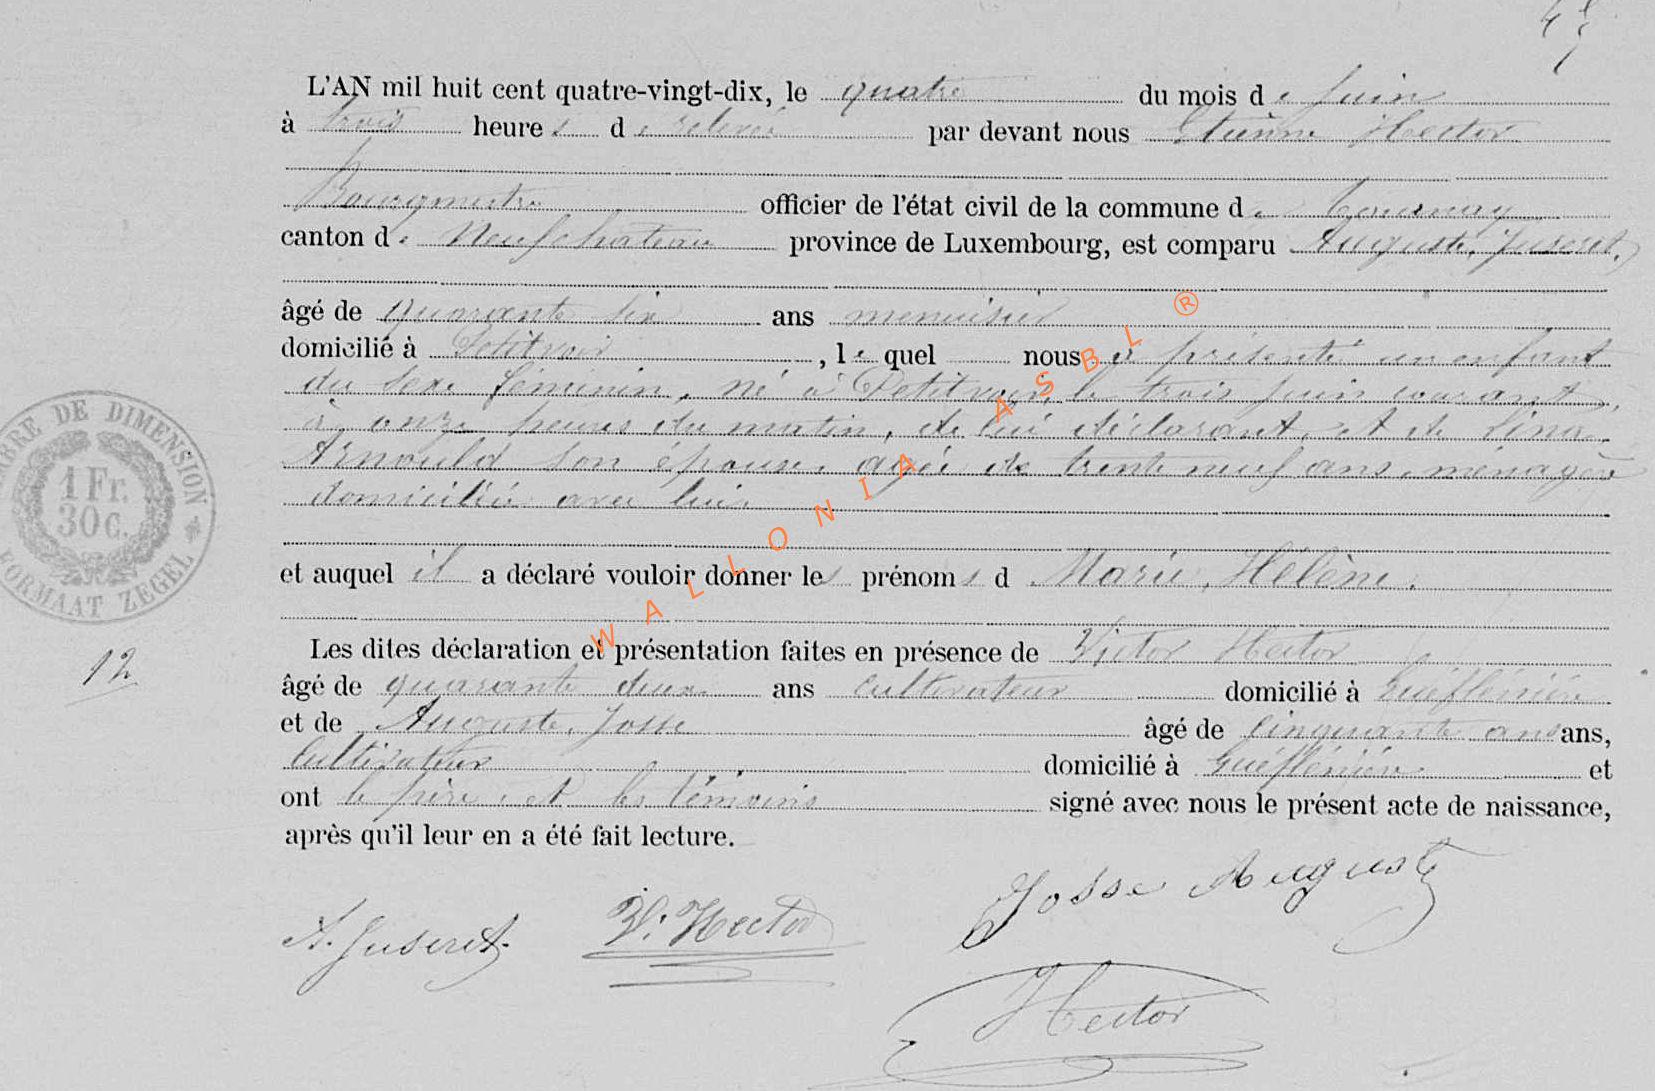 L'AN mil huit cent quatre-vingt-dix, le quatre du mois de Juin
à trois heures de relevée par devant nous Etienne Hector
Bourgmestre officier de l'état civil de la commune de Tournay
canton de Neufchateau province de Luxembourg, est comparu Auguste Juseret,
âgé de quarante six ans menuisier
domicilié à Petitvoir, lequel nous a présenté un enfant
du sexe féminin, né à Petitvoir, le trois juin courant,
à onze heures du matin, de lui déclarant, et de Lina
Arnould son épouse, agée de trente neuf ans, ménagère
domiciliée avec lui.
et auquel il a déclaré vouloir donner les prénoms d Marie, Hélène.
Les dites déclaration et présentation faites en présence de Victor Hector
âgé de quarante deux ans cultivateur domicilié à
et de Auguste Josse âgé de cinquante ans ans,
cultivateur domicilié à et
ont le père et les témoins signé avec nous le présent acte de naissance,
après qu'il leur en a été fait lecture.
A. Juseret. V. Hector Josse Auguste
Hector
TIMBRE DE DIMENSION
1 Fr.
30 C.
FORMAAT ZEGEL
12
WALLONIA ASBL ®